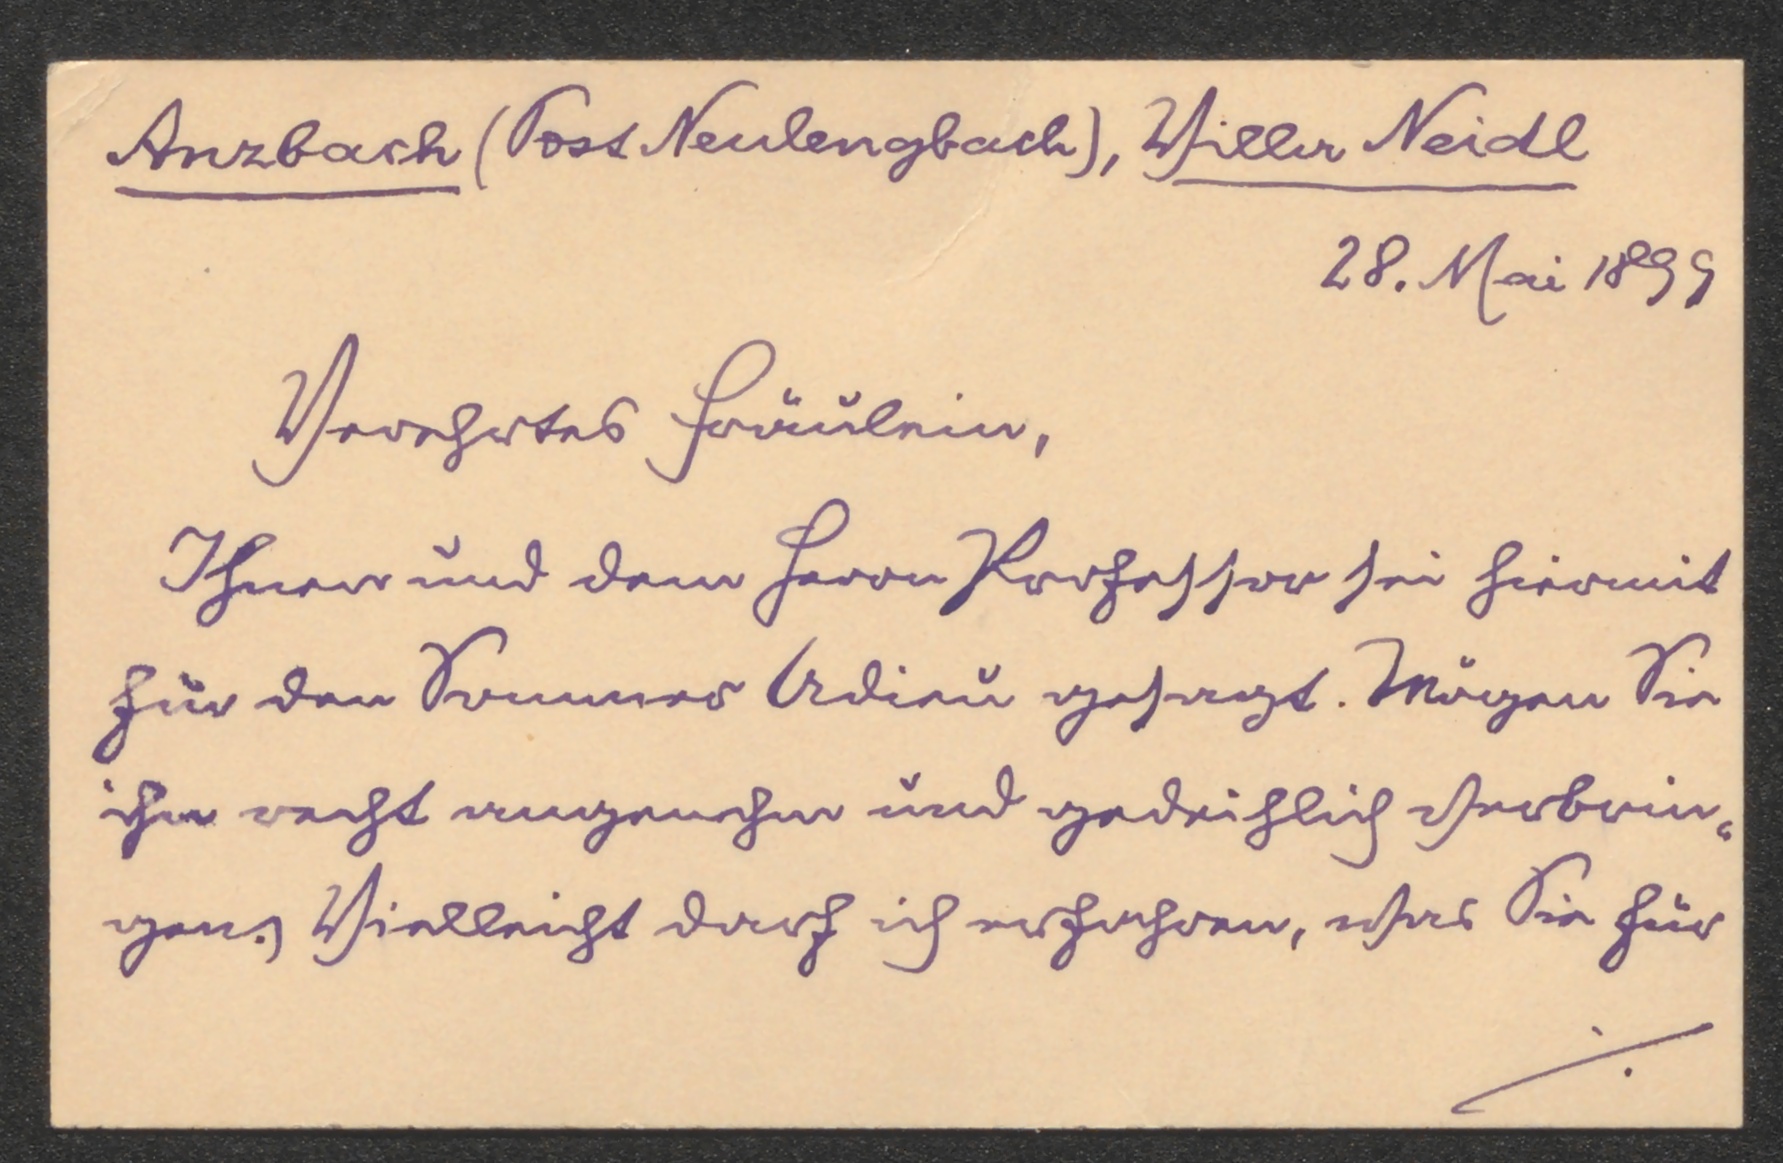 Anzbach (Post Neulengbach), Viller Neidl
28. Mai 1899
Verehrtes Fräulein,
Ihnen und dem Herrn Professor sei hiermit
für den Sommer Adieu gesagt. Mögen Sie
ihn recht angenehm und gedeihlich verbrin-
gen.) Vielleicht darf ich erfahren, was Sie für
./.